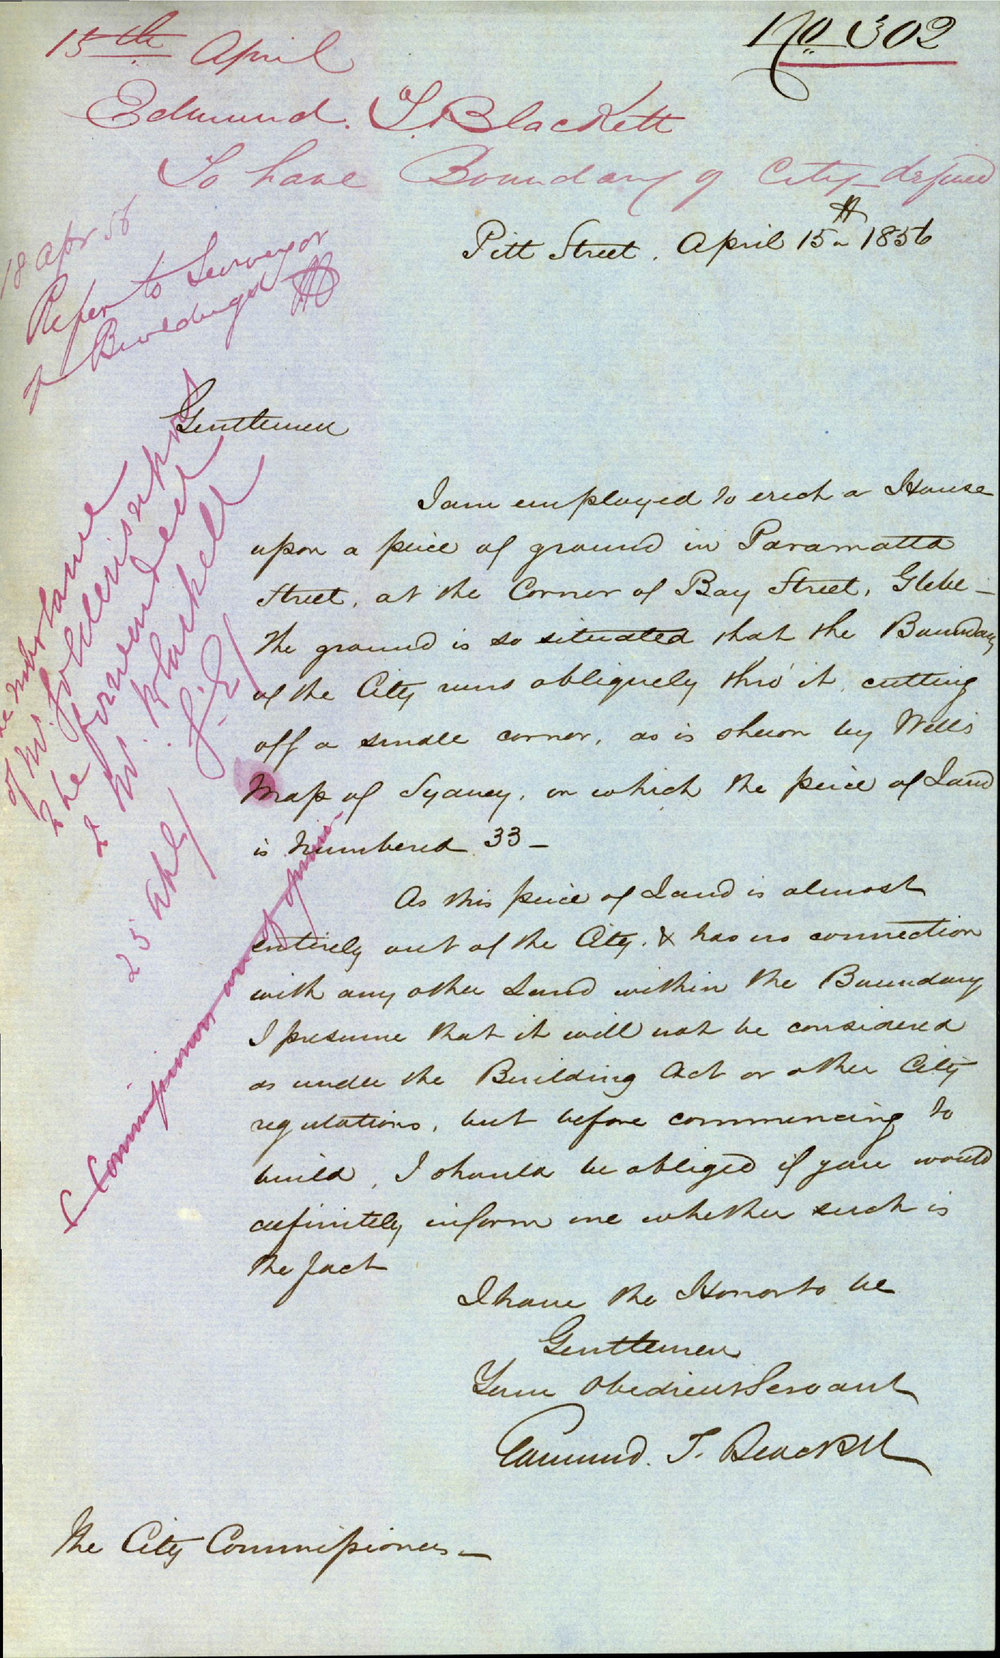 No 302
15th April
Edmund. T. Blackett
To have Boundary of City defined
Pitt Street. April 15th 1856
18 Apr 56
Refer to Surveyor
of Buildings
Gentlemen
I am employed to erect a House
upon a peice of ground in Paramatta
Street, at the Corner of Bay Street, Glebe —
The ground is so situated that the Boundary
of the City runs obliquely thro' it, cutting
off a small corner, as is shewn by Wells
Map of Sydney, on which the peice of Land
is Numbered 33 —
As this peice of Land is almost
entirely out of the City. & has no connection
with any other Land within the Boundary
I presume that it will not be considered
as under the Building Act or other City
regulations, but before commencing to
build, I should be obliged if you would
definitely inform me whether such is
the fact
I have the Honor to be
Gentlemen
Your Obedient Servant
Edmund. T. Blackett
The City Commissioners —
of Mr.
to be forwarded
to Mr. Blackett